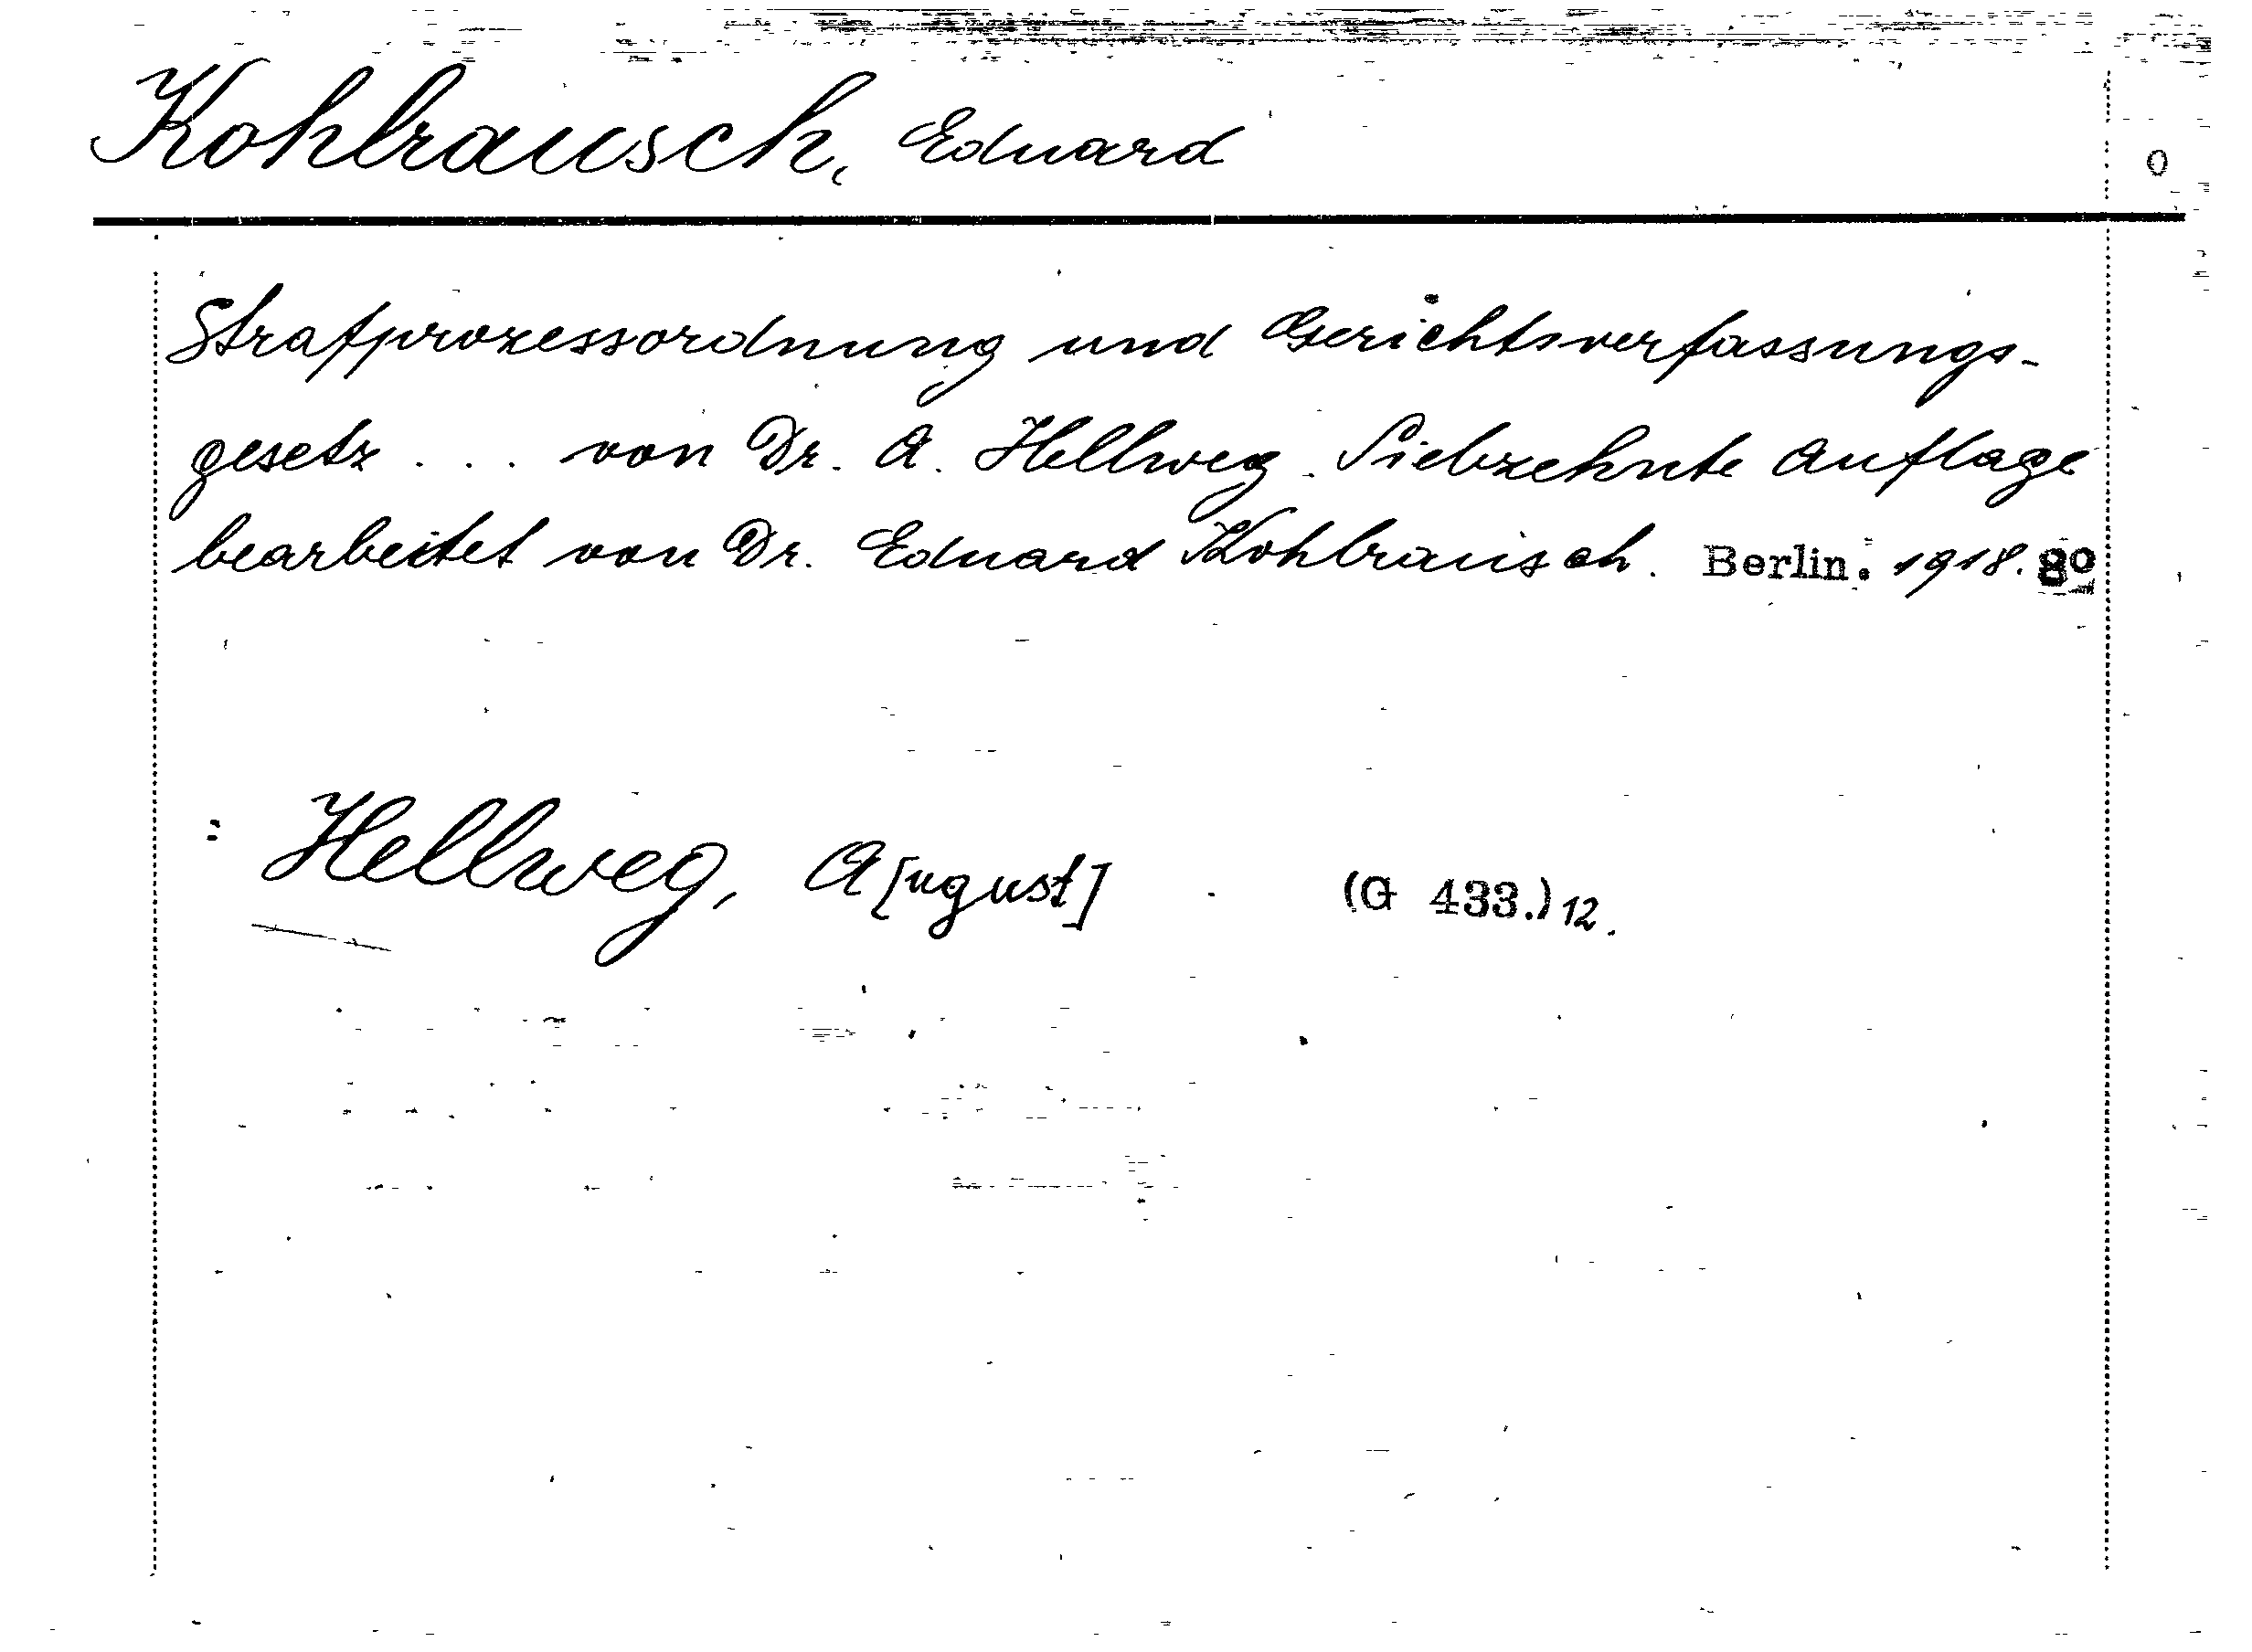 Kohlrausch, Eduard
0
Strafprozessordnung und Gerichtsverfassungs-
gesetz . . . von Dr. A. Hellweg. Siebzehnte Auflage
bearbeitet von Dr. Eduard Kohlrausch. Berlin: 1918. 8º
= Hellweg, A[ugust] (G 433.) 12.